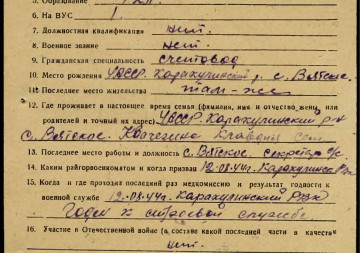 5. Образование
6. На ВУС 1
7. Должностная квалификация нет
8. Военное звание нет
9. Гражданская специальность счетовод
10. Место рождения УАССР. Каракулинский р. с. Вятское.
11. Последнее место жительства там-же
12. Где проживает в настоящее время семья (фамилия, имя и отчество жены или
родителей и точный их адрес) УАССР. Каракулинский р-н
с. Вятское.
13. Последнее место работы и должность с. Вятское, секретарь с/с.
14. Каким райгорвоенкоматом и когда призван 12.03.44г. Каракулинск РВК
15. Когда и где проходил последний раз медкомиссию и результат годности к
военной службе 12.03.44г. Каракулинский РВК
Годен к строевой службе.
16. Участие в Отечественной войне (в составе какой последней части в качеств
нет.